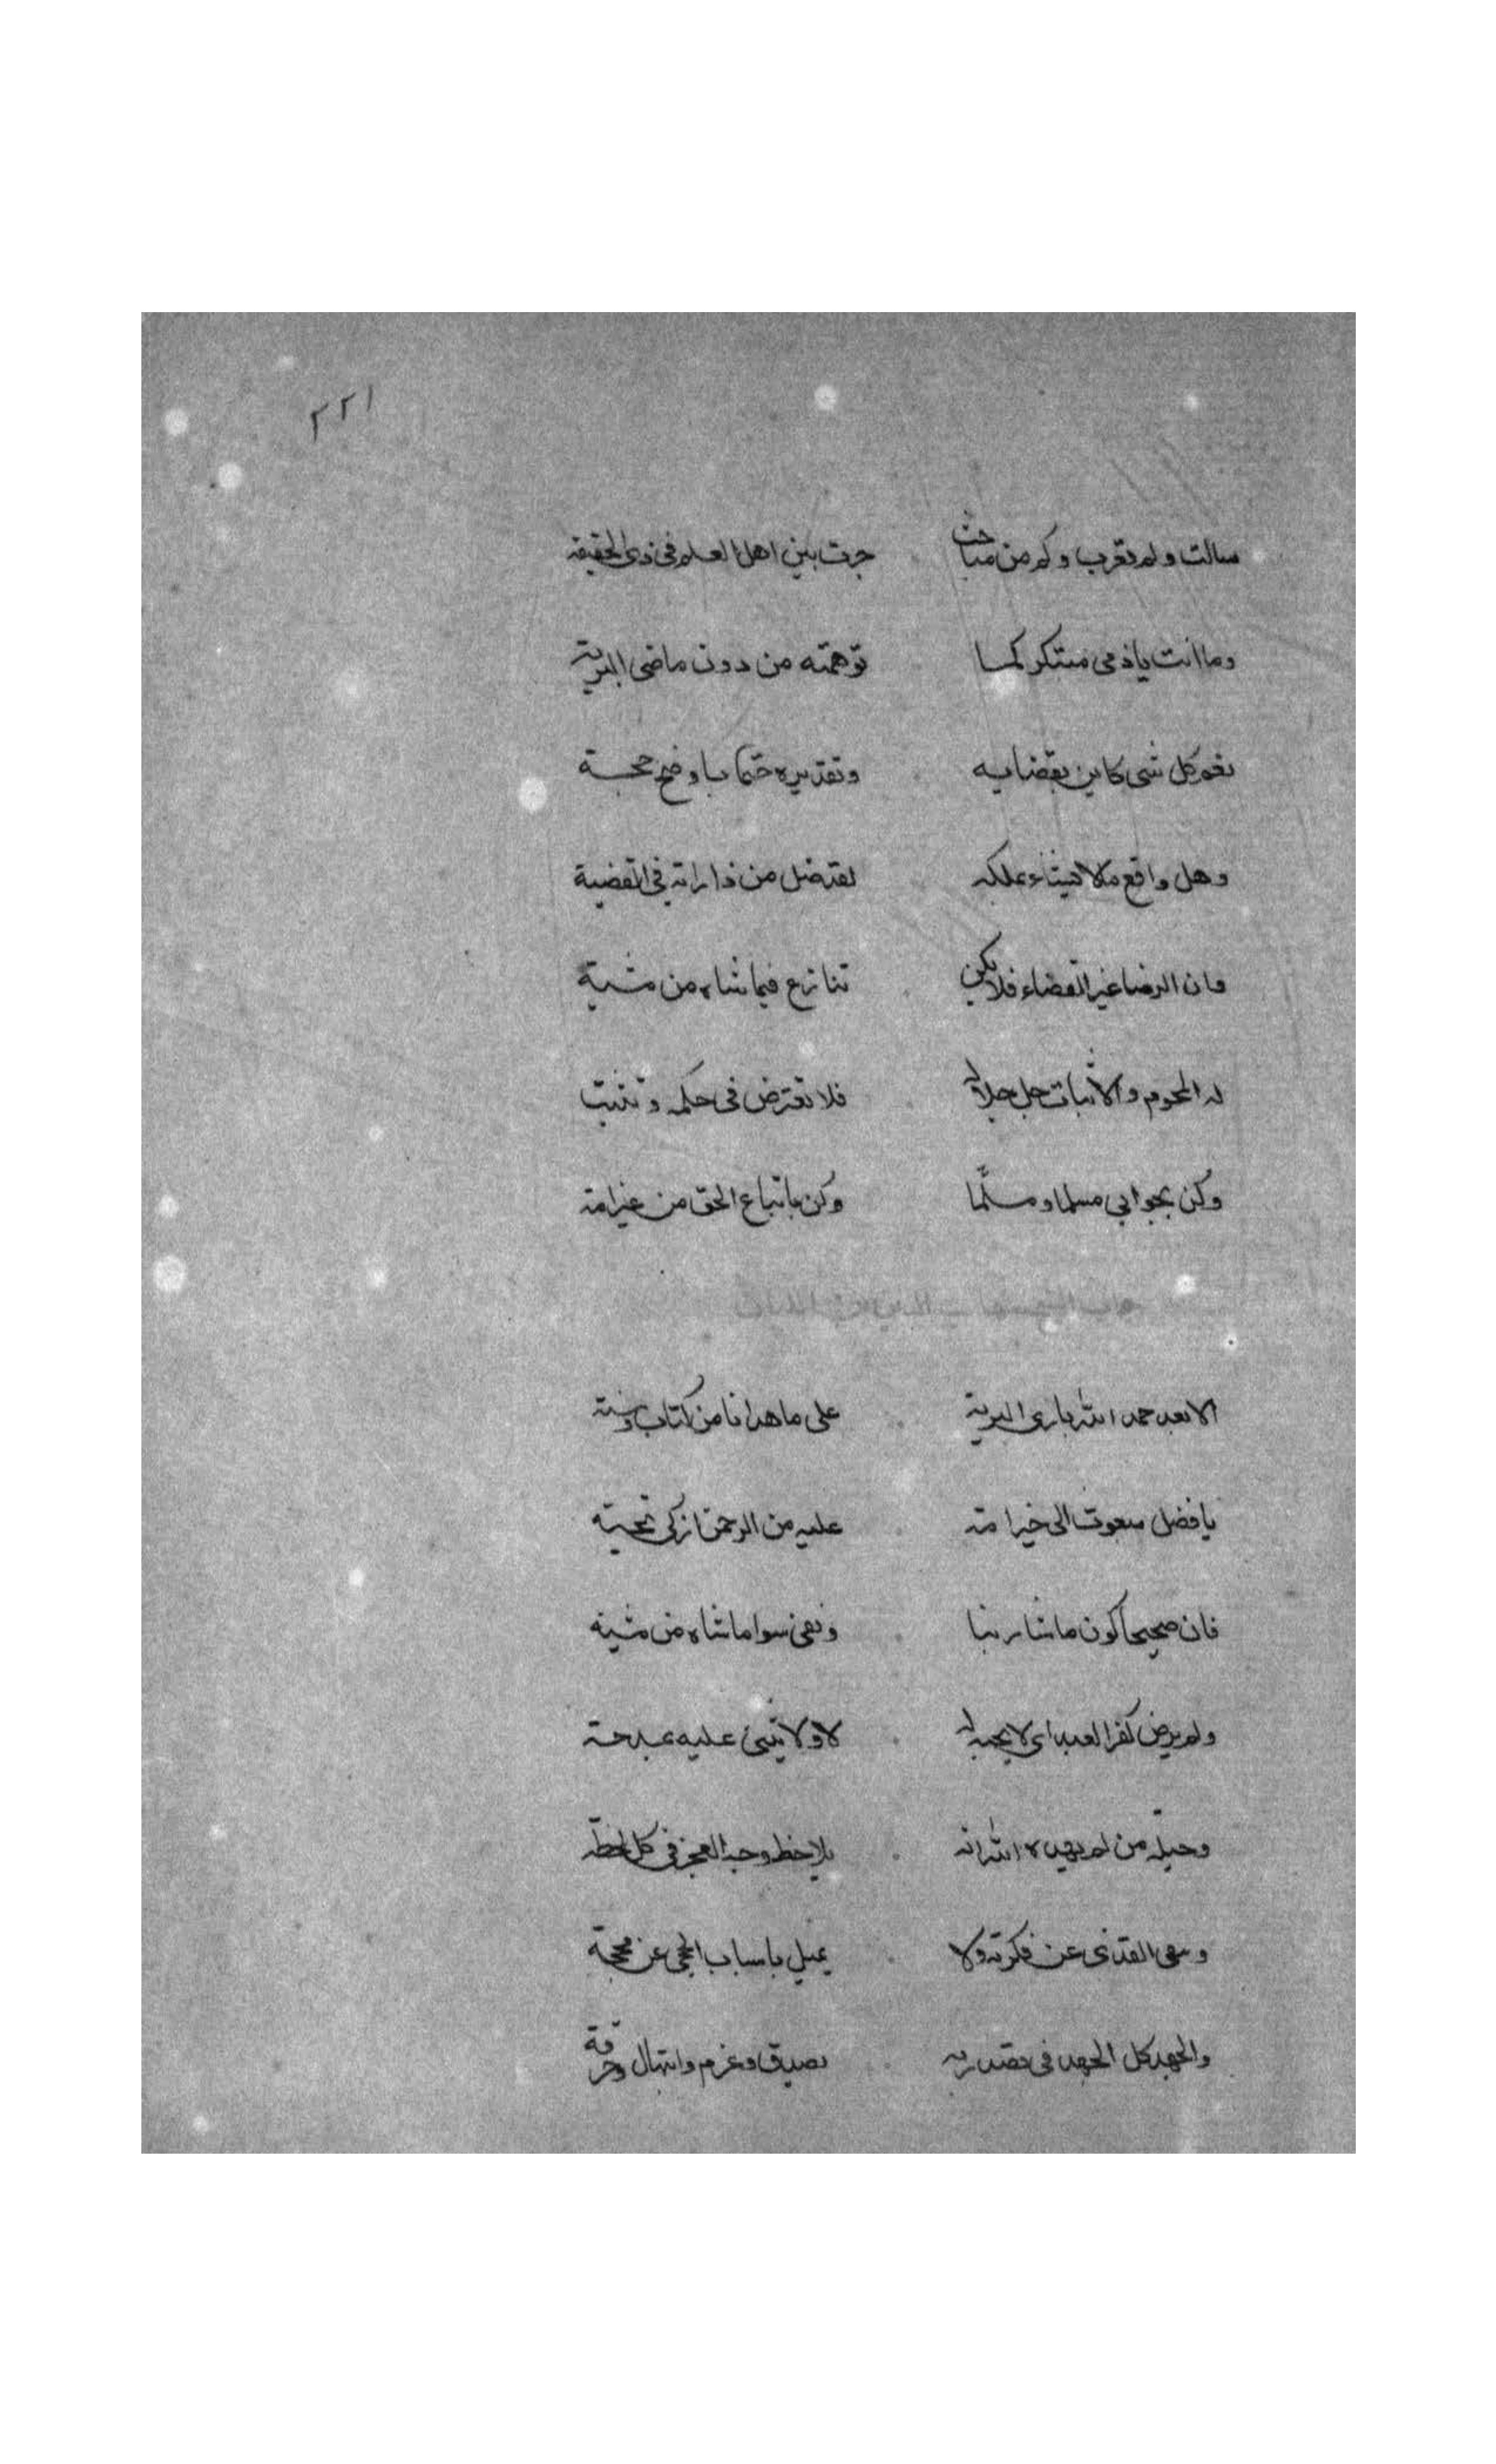 ٢٢١
سالت ولم تغرب وكم من مباحث جرت بين اهل العلم في ذي الحقيقه
وما انت ياذمي مبتكر لما توهمته من دون ماضى البرية
نعم كل شى كاين بقضايه وتقديره حتما باوضح حجة
وهل واقع ملا يشاء بملكه لقد ضل من ذا رايه في القضية
وان الرضا غير القضاء فلا تكن تنازع فيما شاء من مشية
له المحو والاثبات جل جلاله فلا تعترض في حكمه وتثبت
وكن بجوابي مسلما ومسلّما وكن باتباع الحق من خير امة
جواب الشيخ الدين
الا بعد حمد الله بارى البرية على ما هدانا من كتاب وسنة
بافضل مبعوث الى خير امة عليه من الرحمن ازكى تحية
فان صحيحا كون ما شا ربنا ونفى سوا ما شاه من مشية
ولم يرض كفر العبد اى لا يحبه له لا ولا يثنى عليه بمدحة
وحيلة من لم يهده الله انه يلاحظ وجه العجز في كل لحظة
وينفى القذى عن فكرته ولا يميل باسباب الحجى عن محجة
والجهد كل الجهد في قصد ربه بصدق وعزم وابتهال وحرقة